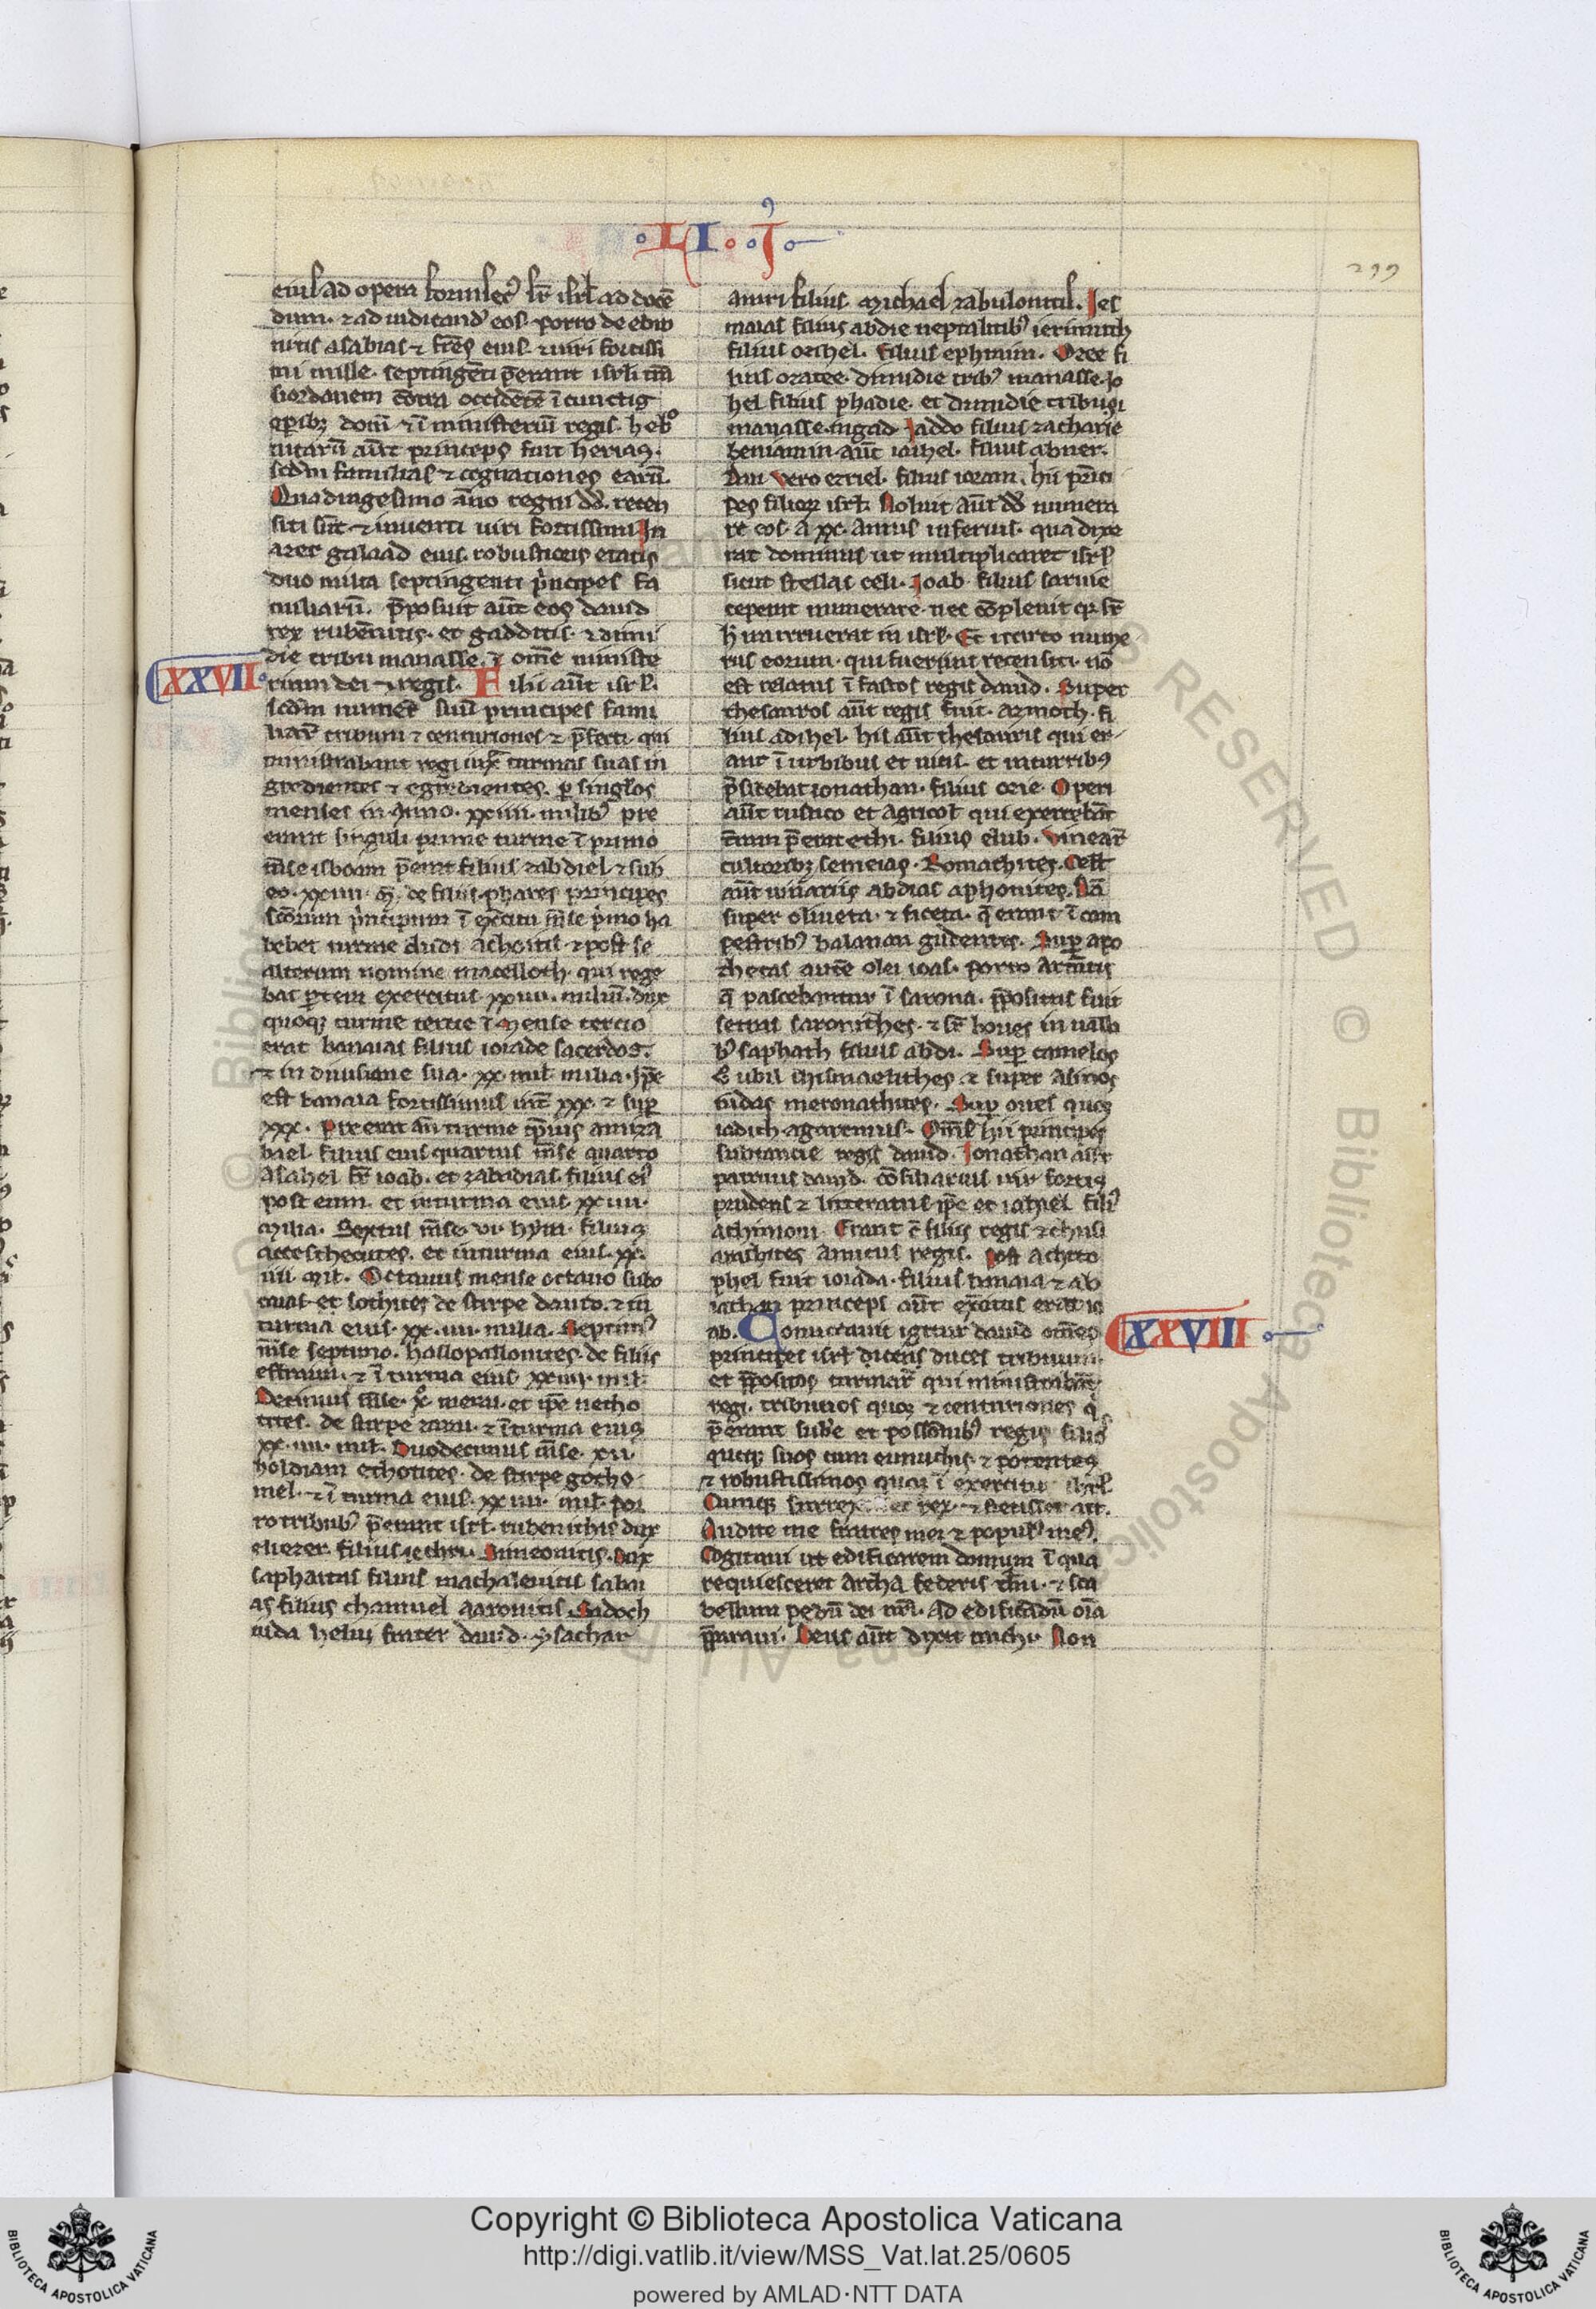 LI · I
299
eius ad opera forinsecꝰ sr̄ isrl̄ ad docē
dum. ⁊ ad iudicand̓ eos. porro de ebro
nitis asabias ⁊ fr̄es eius. ⁊ uiri fortissi
mi mille. septingēti p̄erant isrl̄i trās
iordanem cōtra occidētē ī cunctis
oꝑibꝫ domī ⁊ ī ministeriū regis. hebro
nitarū aūt princeps fuit herias.
scd̄m familias ⁊ cognationes earū.
Quadragesimo āno regni dd̄. recen
siti sūt ⁊ inuenti uiri fortissimi In
azer galaad eius. robustioris etatis
duo milia septingenti pͥncipes fa
miliarū. p̄posuit aūt eos dauid
rex rubēnitis. et gadditis. ⁊ dimi
die tribu manasse. ī om̄e ministe
XXVII
rium dei ⁊ regis. Filii aūt isrl̄.
scd̄m numer̄ suū principes fami
liar̄ tribuni ⁊ centuriones ⁊ p̄fecti qui
ministrabant regi iuxͣ turmas suas in
gredientes ⁊ egredientes. ꝑ singlos
menses in Anno. xxiiii. milibꝰ pre
erant singuli prime turme ī primo
m̄se isboam p̄erat filius zabdiel ⁊ sub
eo. xxiiii. m̄. de filius. phares princeps
bebet turme dudi achoitis ⁊ post se
alterum nomine macelloth. qui rege
bat ꝑtem exercitus xxiiii. miliū. dux
quoqꝫ turme tertie ī Mense tercio
erat banaias filius ioiade sacerdos.
⁊ in diuisione sua. xx. iiii. milia. Ip̄e
est banaia fortissimus int̄ xxx. ⁊ suꝑ
bael. filius eius quartus m̄se quarto
Asahel fr̄ ioab. et zabadias. filius eiꝰ
post eum. et inturma eius. xxiiii.
Milia. Sextus m̄se. vi. hyra. filius
accesthecutes. et inturma eius. xx.
iiii. mil. Octauus mense octauo sobo
turma eius. xx. iiii. milia. Septimꝰ
m̄se septimo. hallopallonites. de filiis
effraim. ⁊ ī turma eius. xxiiii. mil.
Decimus m̄se. x. merai. et ip̄e netho
tites. de stirpe zarai. ⁊ īturma eius
xx. iiii. mil. Duodecimus m̄se. xii.
holdiam ethotites. de stirpe gotho
niel. ⁊ ī turma eius. xxiiii. mil. por
ro tribubꝰ p̄erant isrl̄. rubenithis dux
eliezer. filius iethri. Simeonitis. dux
saphatias filius machaleuitis sabai
as filius chamuel aaronitis Sadoch
iuda heliu frater dauid. ysachar
amri filius Michael zabulonitis. Ies
maias filius abdie neptalitibꝰ ierimuth
filius ozihel. filius ephraim. Ozee fi
lius ozazee. dimidie tribꝰ manasse. Jo
hel filius phadie. et dimidie tribusi
manasse. ingad Jaddo filius zacharie
beniamin aūt iaihel. filius abner.
Dan vero ezriel. filius ieram. hii p̄nci
pes filioꝝ isrl̄. Noluit aūt dd̄ numera
re eos. a xx. annis inferius. qua dixe
rat dominus ut multiplicaret isrl̄
sicut stellas celi. Joab. filius saruie
ceperat numerare. nec cōpleuit qꝫ sr̄
h̓ ira irruerat in isrl̄. Et iccirco nume
rus eorum. qui fuerunt recensiti. nō
est relatus ī fastos regis dauid. Super
thesauros aūt regis fuit. azmoth. fi
lius adihel. his aūt thesauris qui er
ant ī urbibus et uicis. et inturribꝰ
p̄sidebat ionathan. filius ozie. Operi
aūt rustico et agricol̄ qui exercebāt
t̄ram p̄erat ethi. filius elub. Vinear̄
cultoribꝫ semeias. Romathites. Cell̄
aūt uinariis abdias aphonites. Nā
super oliueta. ⁊ ficeta. q̄ erant ī cam
pestribꝰ balanan gudentes. Suꝑ apo
thecas autē olei ioas. porro armētis
q̄ pascebantur ī sarona. p̄positus fuit
setras saronithes. ⁊ sr̄ boues in ualli
bꝰ saphath filius abdi. Suꝑ camelos
ů ubil ismaelithes. ⁊ super asinos
iudas meronathites. Suꝑ oues quoqꝫ
iadich. agarenus. Om̄s hii principes
substancie regis dauid. Jonathan aūt
patruus dauid. cōsiliarius uir fortis
prudens ⁊ litteratus. ip̄e et iahiel filiꝰ
athimoni. Erant c̄ filiis regis ⁊ chusi
arachites Amicus regis. post Achito
phel fuit ioiada. filius banaia ⁊ ab
iathar princeps aūt ex̄citus erat io
ab. Conuocauit igitur dauid om̄es
XXVIII
principes isrl̄ dicens duces tribuum
et p̄positos turmar̄ qui ministrabāt
regi. tribunos quoqꝫ ⁊ centuriones qͥ
p̄erant sub̄e et possōnibꝰ regis filios
quoqꝫ suos cum eunuchis ⁊ potentes
⁊ robustissimos quosqꝫ ī exercitu isrl̄.
Cumqꝫ surrexisset rex. ⁊ stetisset ait.
Audite me fratres mei ⁊ populꝰ meꝰ.
Cogitaui ut edificarem domum ī qua
requiesceret Archa federis dn̄i. ⁊ sca
bellum pedū dei nr̄i. ad edificādū oīa
p̄paraui. Deus aūt dixit michi. Non
Copyright © Biblioteca Apostolica Vaticana
http://digi.vatlib.it/view/MSS_Vat.lat.25/0605
powered by AMLAD·NTT DATA